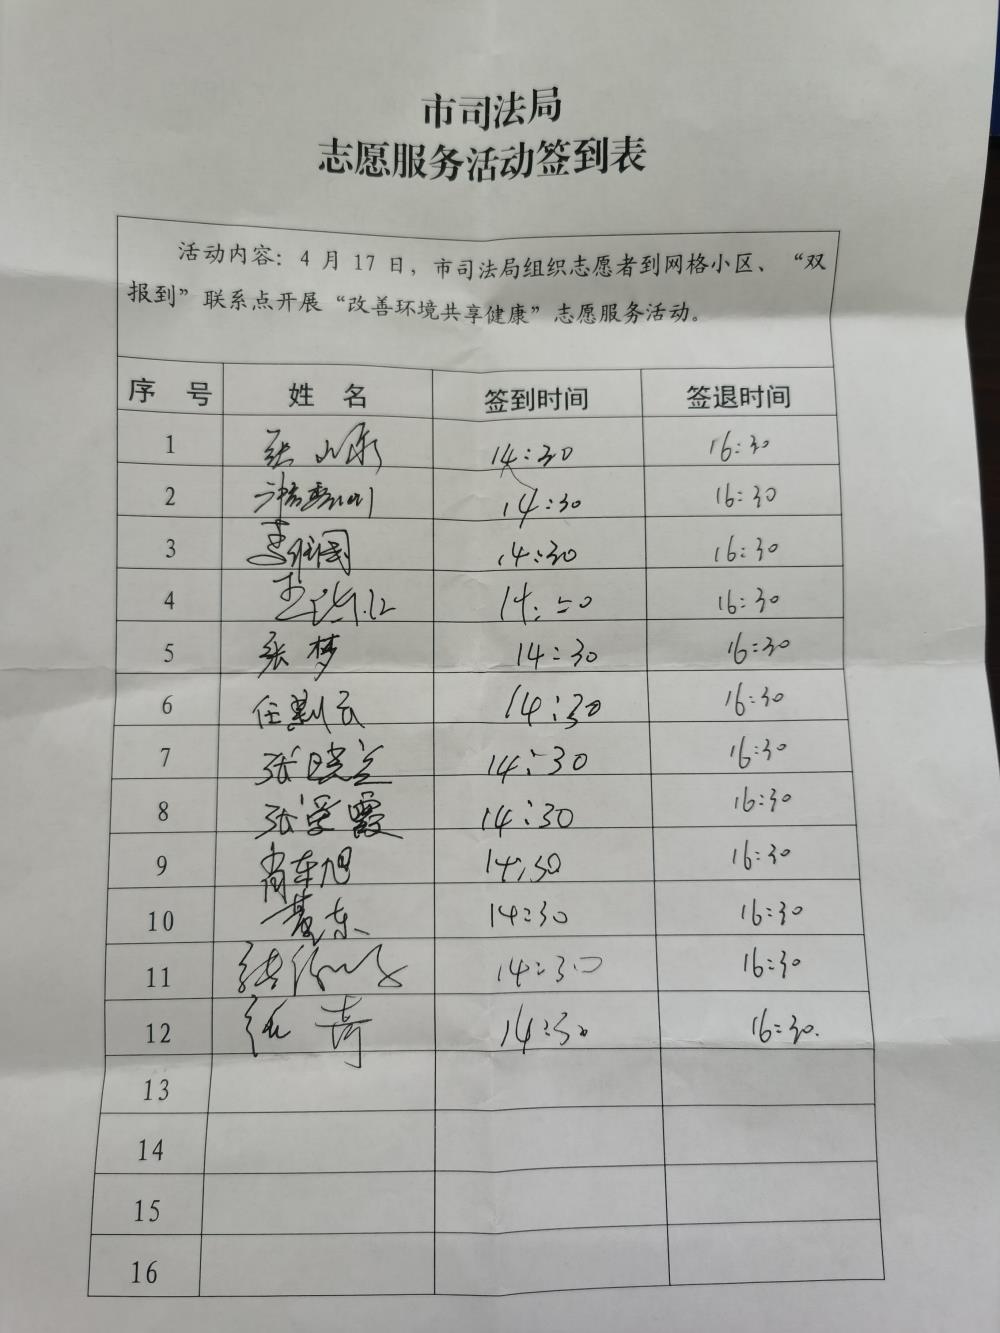 市司法局
志愿服务活动签到表
活动内容：4月17日，市司法局组织志愿者到网格小区、“双
报到”联系点开展“改善环境共享健康”志愿服务活动。
序 号 姓 名 签到时间 签退时间
1 张 14:30 16:30
2 14:30 16:30
3 李 国 14:30 16:30
4 王 14:30 16:30
5 张梦 14:30 16:30
6 任 云 14:30 16:30
7 张晓兰 14:30 16:30
8 张爱霞 14:30 16:30
9 肖东旭 14:30 16:30
10 东 14:30 16:30
11 14:30 16:30
12 琦 14:30 16:30.
13
14
15
16